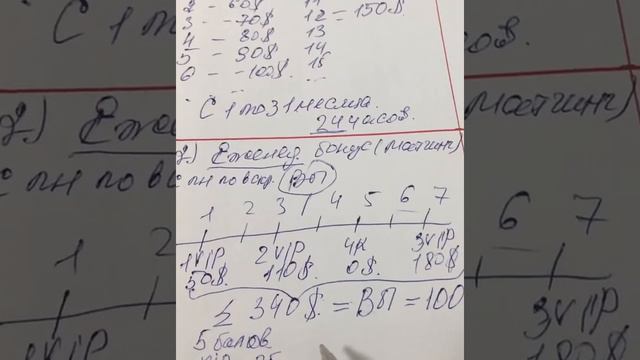 2 – 60$ 11
3 – 70$ 12 = 150$.
4 – 80$ 13
5 – 90$ 14
6 – 100$. 15
... ...
С 1 по 31 месяца.
24 часов.
2.) Еженед. бонус (матчинг)
с пн по вскр. ВП
1 2 3 4 5 6 7
1 VIP 2 VIP 4к 3 VIP
50$. 110$. 0$. 180$
≤ 340$. = ВП = 100
5 балов